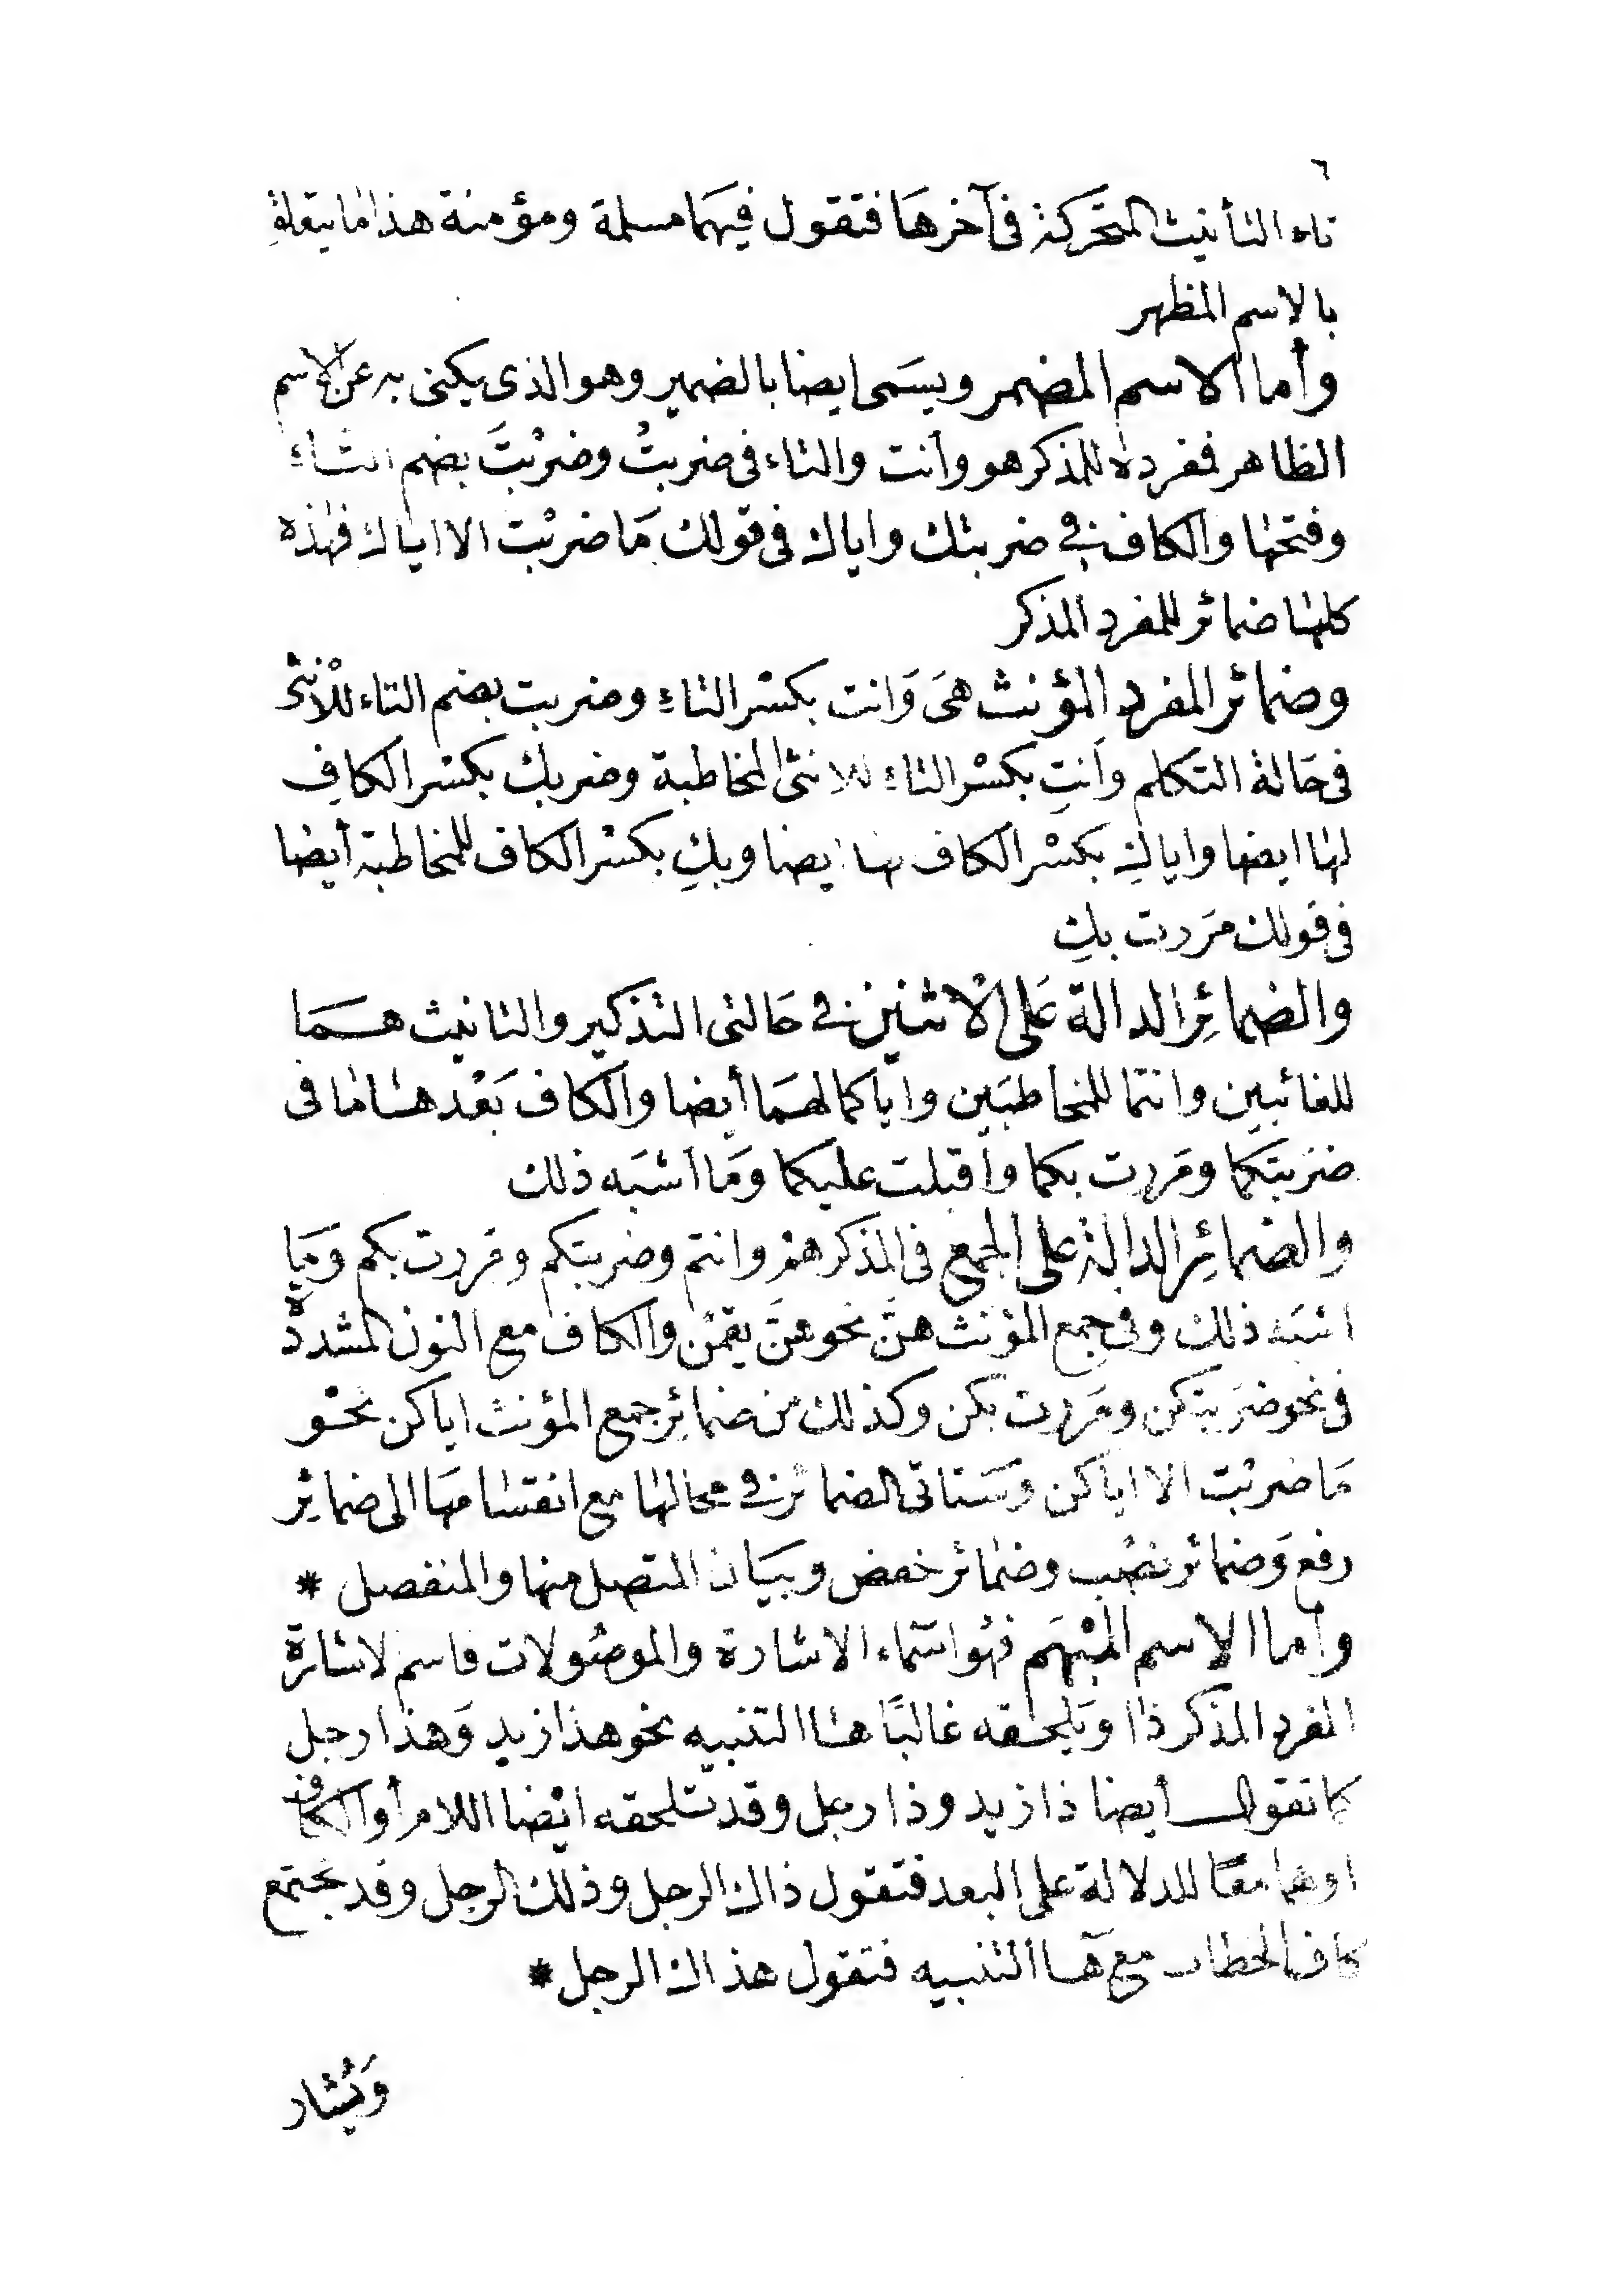 ٦
تاء التأنيث المتحركة فى آخرهَا فتقول فيهَما مسلمة ومؤمنة هذا ما يتعلق
بالاسم المظهر
وأما الاسم المضمر ويسَمى ايضا بالضمير وهو الذى يكنى به عن الاسم
الظاهر فمفرده للمذكر هو وأنت والتاء فى ضربتُ وضربْتَ بضم التاء
وفتحها والكاف فى ضربتك واياك فى قولك مَا ضربْت الا اياك فهذه
كلها ضمائر للمفرد المذكر
وضمائر المفرد المؤنث هىَ وَانت بكسْر التاءِ وضربت بضم التاء للأنثى
فى حَالة التكلم وأنتِ بكسْر التاءِ للانثى المخاطبة وضربك بكسْر الكافِ
لها ايضا واياكِ بكسْر الكاف لها ايضا وبكِ بكسْر الكاف للمخاطبة أيضا
فى قولك مَررت بكِ
والضمائِر الدالة عَلى الاثنين فى حَالتى التذكير والتانيث همَا
للغائبين وانتما للمخاطبَين واياكما لهمَا أيضا والكاف بَعْدها ما فى
ضرَبتكما ومَررت بكما وأقبلت عليكما وَما أشبَه ذلك
والضمائِر الدالة على الجمع فى المذكر همْ وانتم وضربتكم ومَررت بكم ومَا
اشبَه ذلك وفى جمع المؤنث هنَّ نحو هنَّ يقمْن والكاف مع النون المشددة
فى نحو ضرَبتكن ومَررت بكن وكذلك من ضمائِر جمع المؤنث اياكن نحْو
مَا ضربْت الا اياكن وسَتاتى الضمائر فى محالها مع انقسامهَا الى ضمائِر
رفع وَضمائر نصْب وضمائر خفض وبيَان المتصل منها والمنفصل *
وأما الاسم المبْهَم فهُو اسَماء الاشارة والموصُولات فاسم لاشارة
المفرد المذكر ذا وَيلحقه غالبًا هَا التنبيه نحو هذا زيد وَهذا رجل
كما تقول أيضا ذا زيد وذا رجل وقد تلحقه ايْضا اللام أو الكاف
او هما معًا للدلالة على البعد فتقول ذاك الرجل وذلك الرجل وقد تجتمع
كاف الخطاب مع هَا التنبيه فتقول هذاك الرجل *
وَيُشار